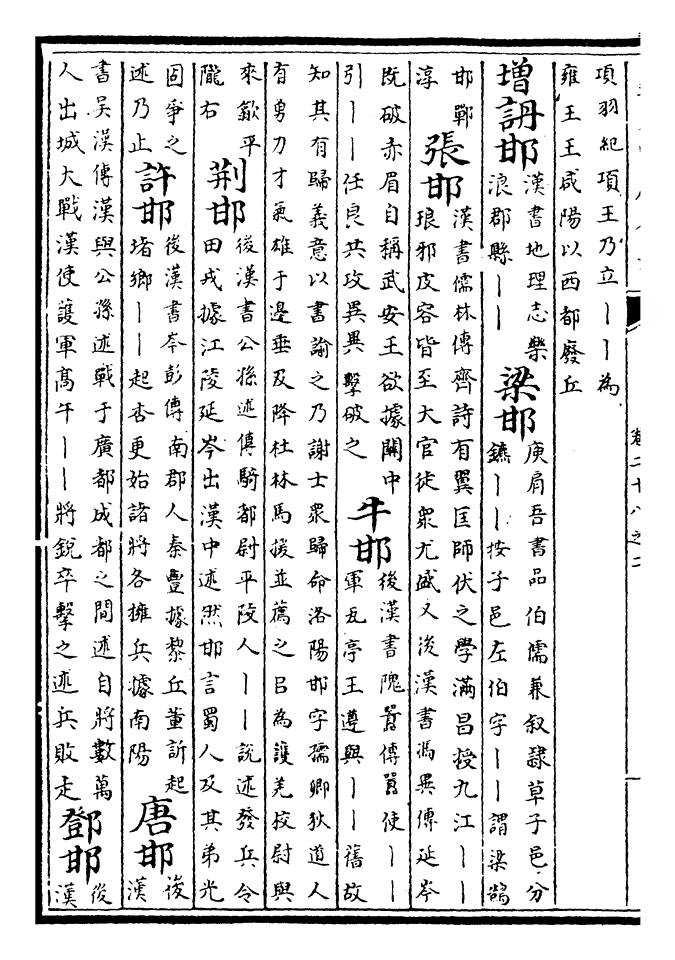 卷二十八之二
項羽紀項王乃立丨丨為
雍王王咸陽以西都廢丘
增䛁邯
漢書地理志樂
浪郡縣丨丨
梁邯
庾肩吾書品伯儒兼叙隸草子邑分
鑣丨丨按子邑左伯字丨丨謂梁鵠
邯鄲
淳
張邯
漢書儒林傳齊詩有翼匡師伏之學滿昌授九江丨丨
琅邪皮容皆至大官徒衆尤盛又後漢書馮異傳延岑
既破赤眉自稱武安王欲據關中
引丨丨任良共攻異異擊破之
牛邯
後漢書隗囂傳囂使丨丨
軍瓦亭王遵與丨丨舊故
知其有歸義意以書諭之乃謝士衆歸命洛陽邯字孺卿狄道人
有勇力才氣雄于邊垂及降杜林馬援並薦之以為護羌校尉與
來歙平
隴右
荆邯
後漢書公孫述傳騎都尉平陵人丨丨說述發兵令
田戎據江陵延岑出漢中述然邯言蜀人及其弟光
固爭之
述乃止
許邯
後漢書岑彭傳南郡人秦豐據黎丘董訢起
堵鄉丨丨起杏更始諸將各擁兵據南陽
唐邯
後
漢
書吳漢傳漢與公孫述戰于廣都成都之間述自將數萬
人出城大戰漢使護軍高午丨丨將銳卒擊之述兵敗走
鄧邯
後
漢